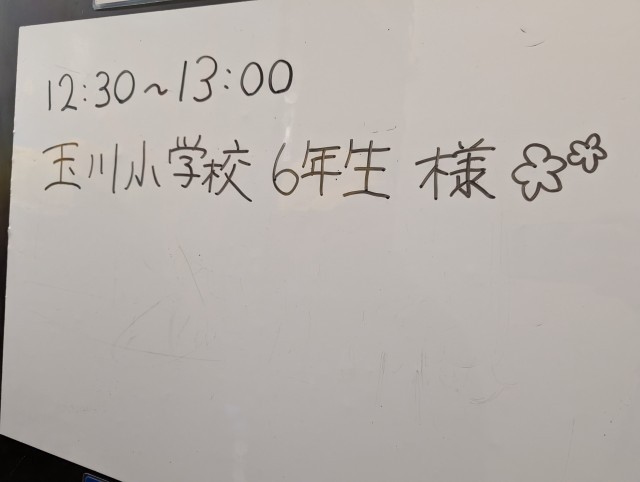 12:30~13:00
玉川小学校 6年生 様